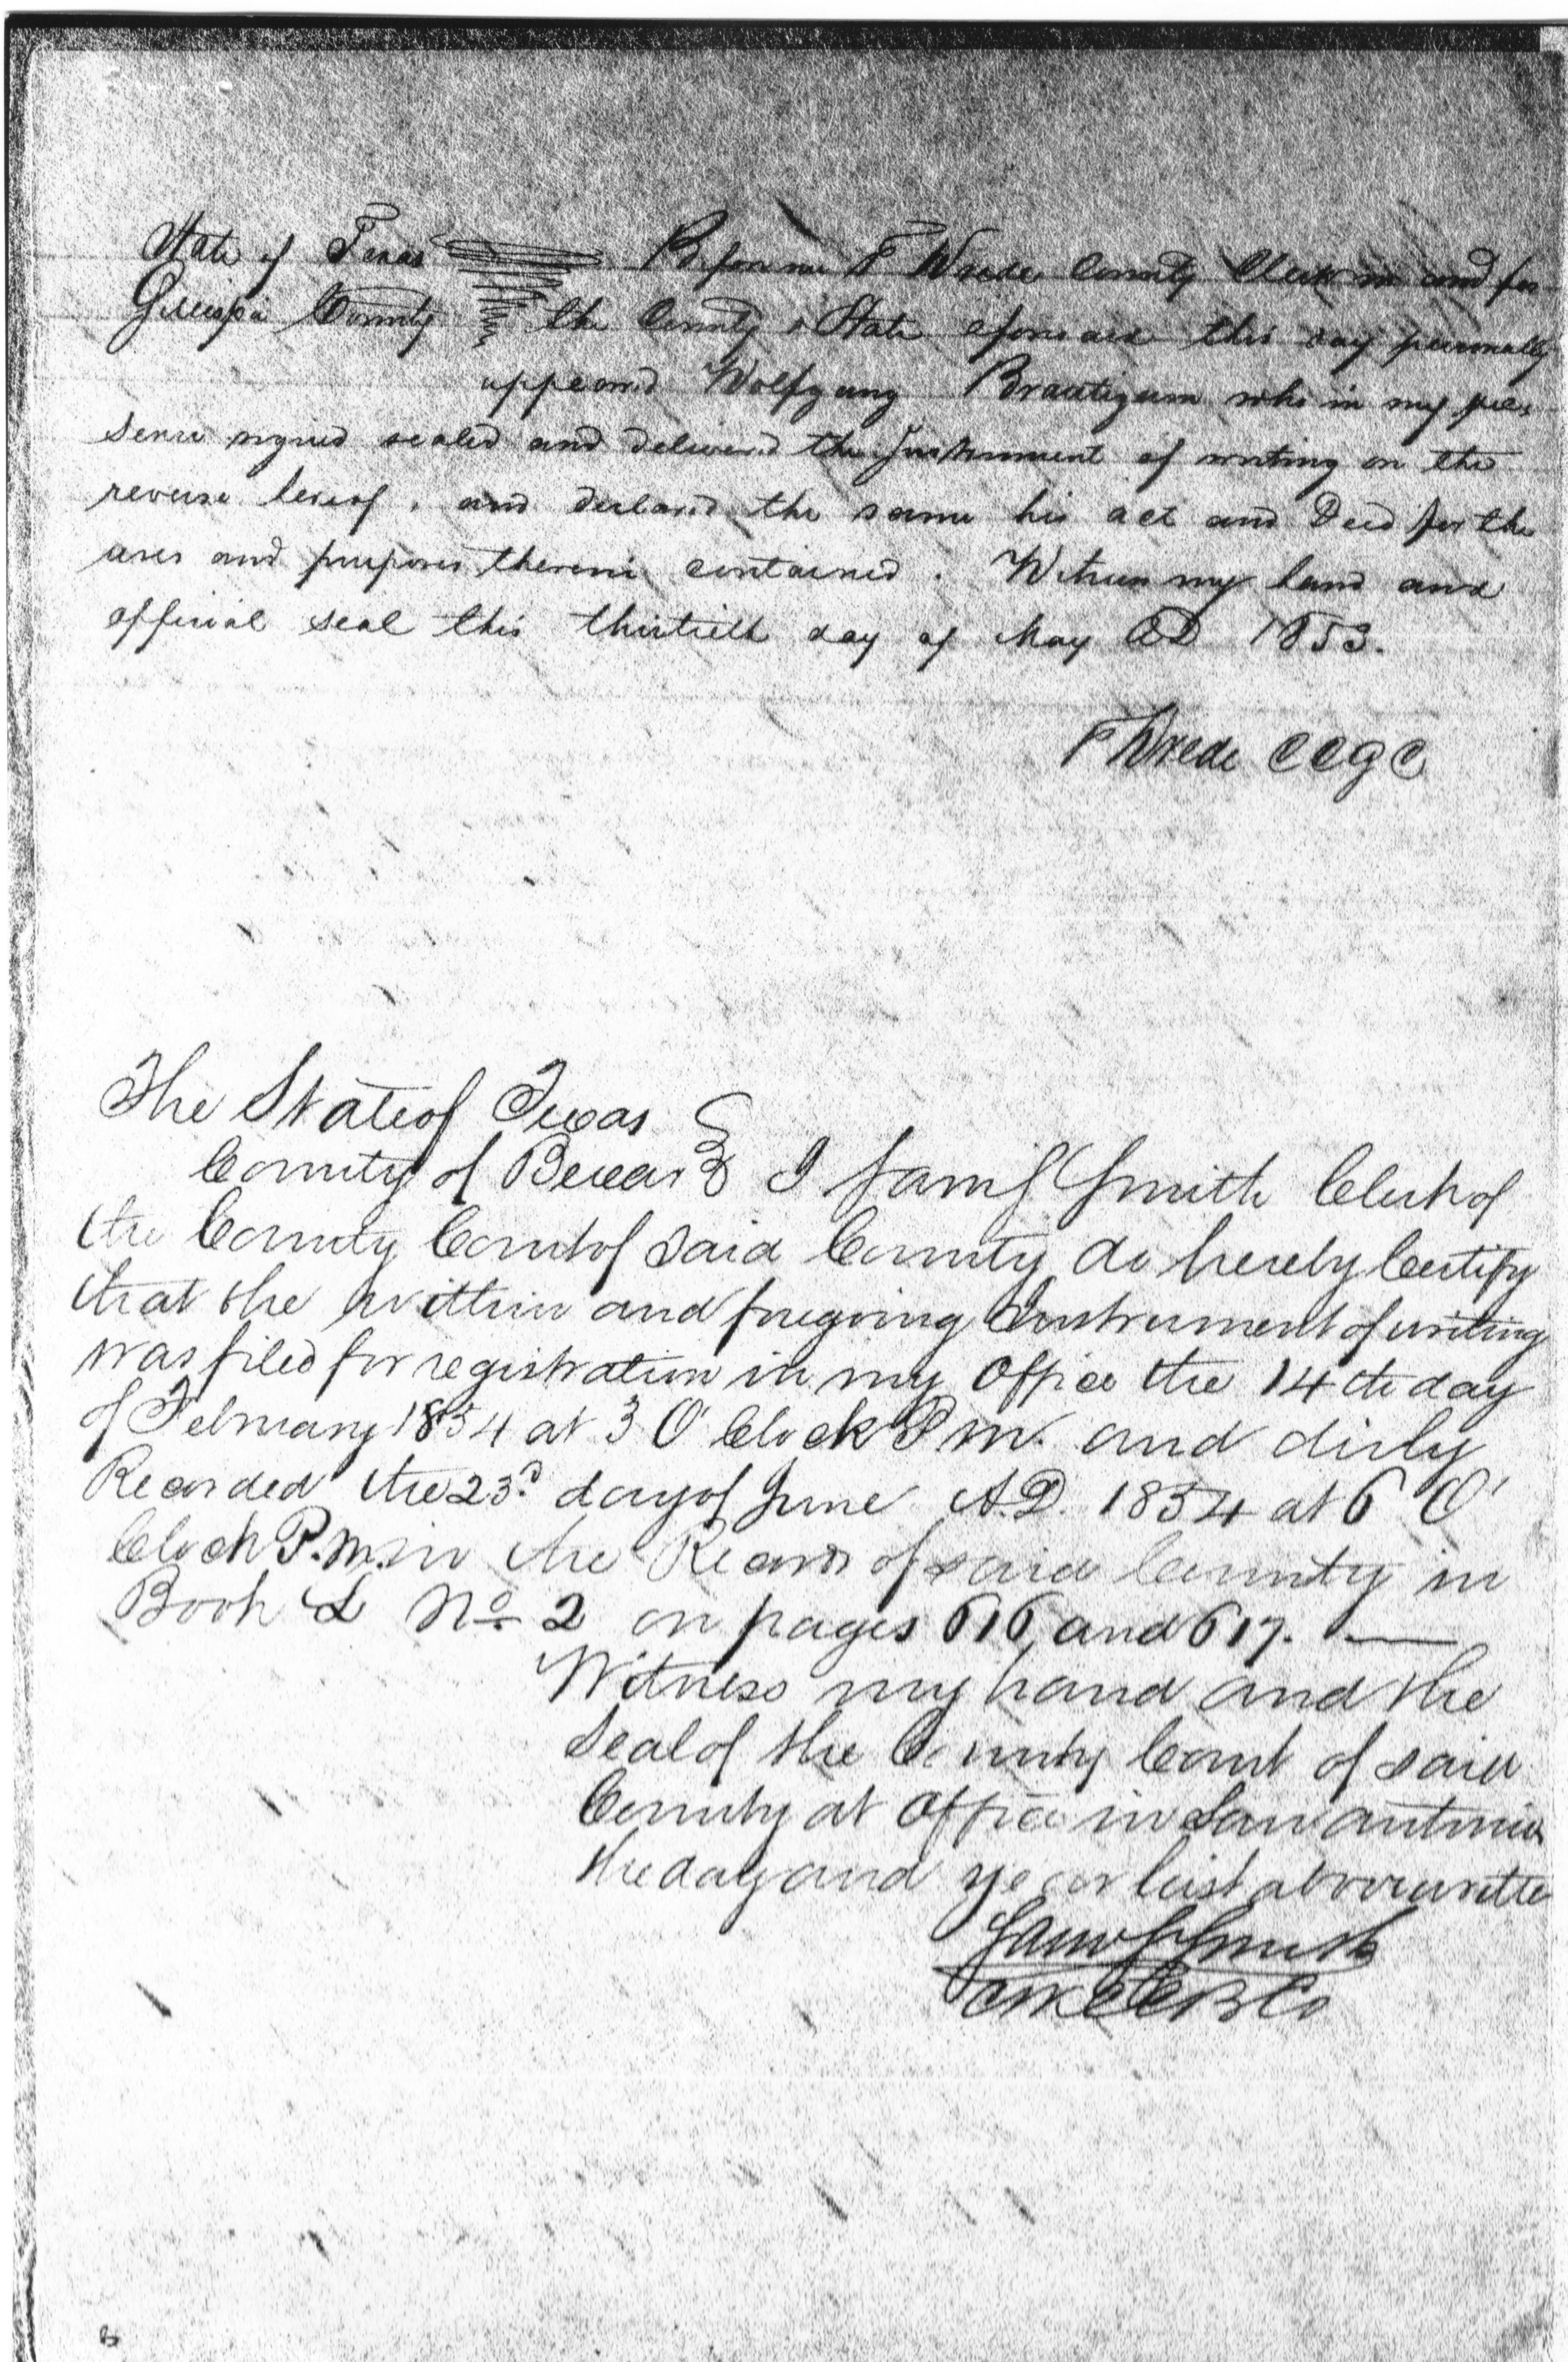 State of Texas Before me F Wrede County Clerk in and for
Gillespie County the County & State aforesaid this day personally
appeared Wolfgang Brautigam who in my pres
sence signed sealed and delivered the Instrument of writing on the
reverse hereof, and declared the same his act and Deed for the
uses and purposes therein contained. Witness my hand and
official seal this thirtieth day of May AD 1853.
F Wrede CCGC
The State of Texas
County of Bexar I Sam S Smith Clerk of
the County Court of said County do hereby Certify
that the within and foregoing Instrument of writing
was filed for registration in my Office the 14th day
of February 1854 at 3 O'Clock P.M. and duly
Recorded the 23d day of June A.D. 1854 at 6 O'
Clock P.M. in the Records of said County in
Book L No 2 on pages 616 and 617.
Witness my hand and the
Seal of the County Court of said
County at Office in San Antonio
the day and year last above written
Sam S Smith
CLKCCBCo